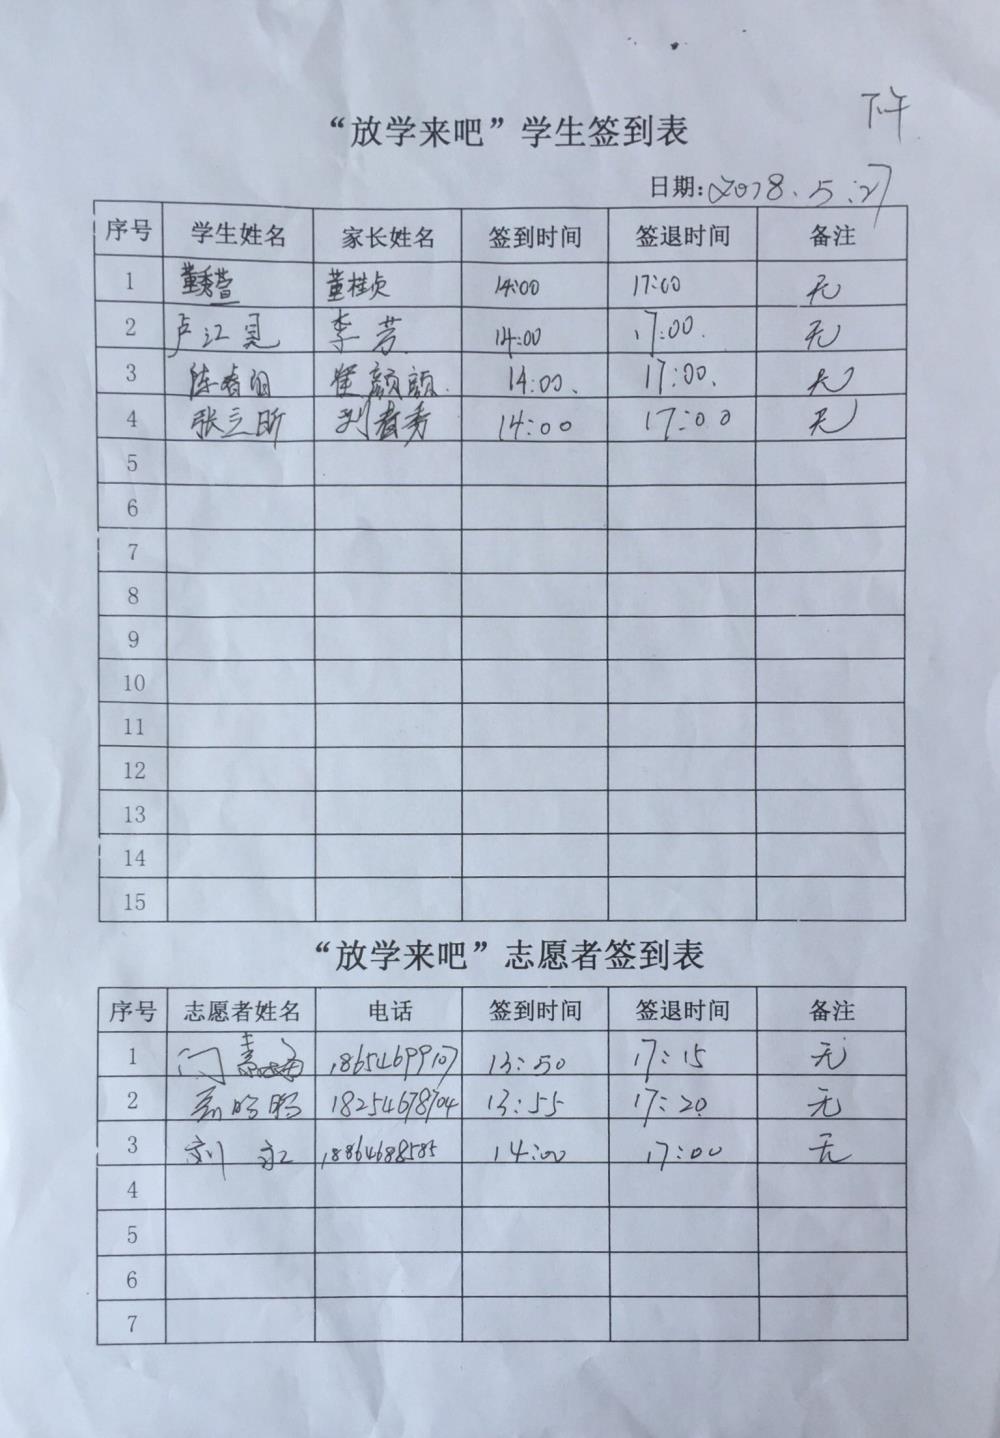 下午
“放学来吧”学生签到表
日期:2018.5.27
序号 学生姓名 家长姓名 签到时间 签退时间 备注
1 董秀萱 董桂贞 14:00 17:00 无
2 卢江昊 李芳 14:00 17:00. 无
3 崔颜颜. 14:00、 17:00、 无
4 张立昕 刘春秀 14:00 17:00 无
5
6
7
8
9
10
11
12
13
14
15
“放学来吧”志愿者签到表
序号 志愿者姓名 电话 签到时间 签退时间 备注
1 门 18654699107 13:50 17:15 无
2 18254678704 13:55 17:20 无
3 刘红 18864688585 14:00 17:00 无
4
5
6
7